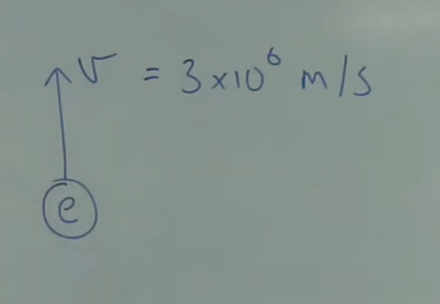 v = 3×10⁶ m/s
e